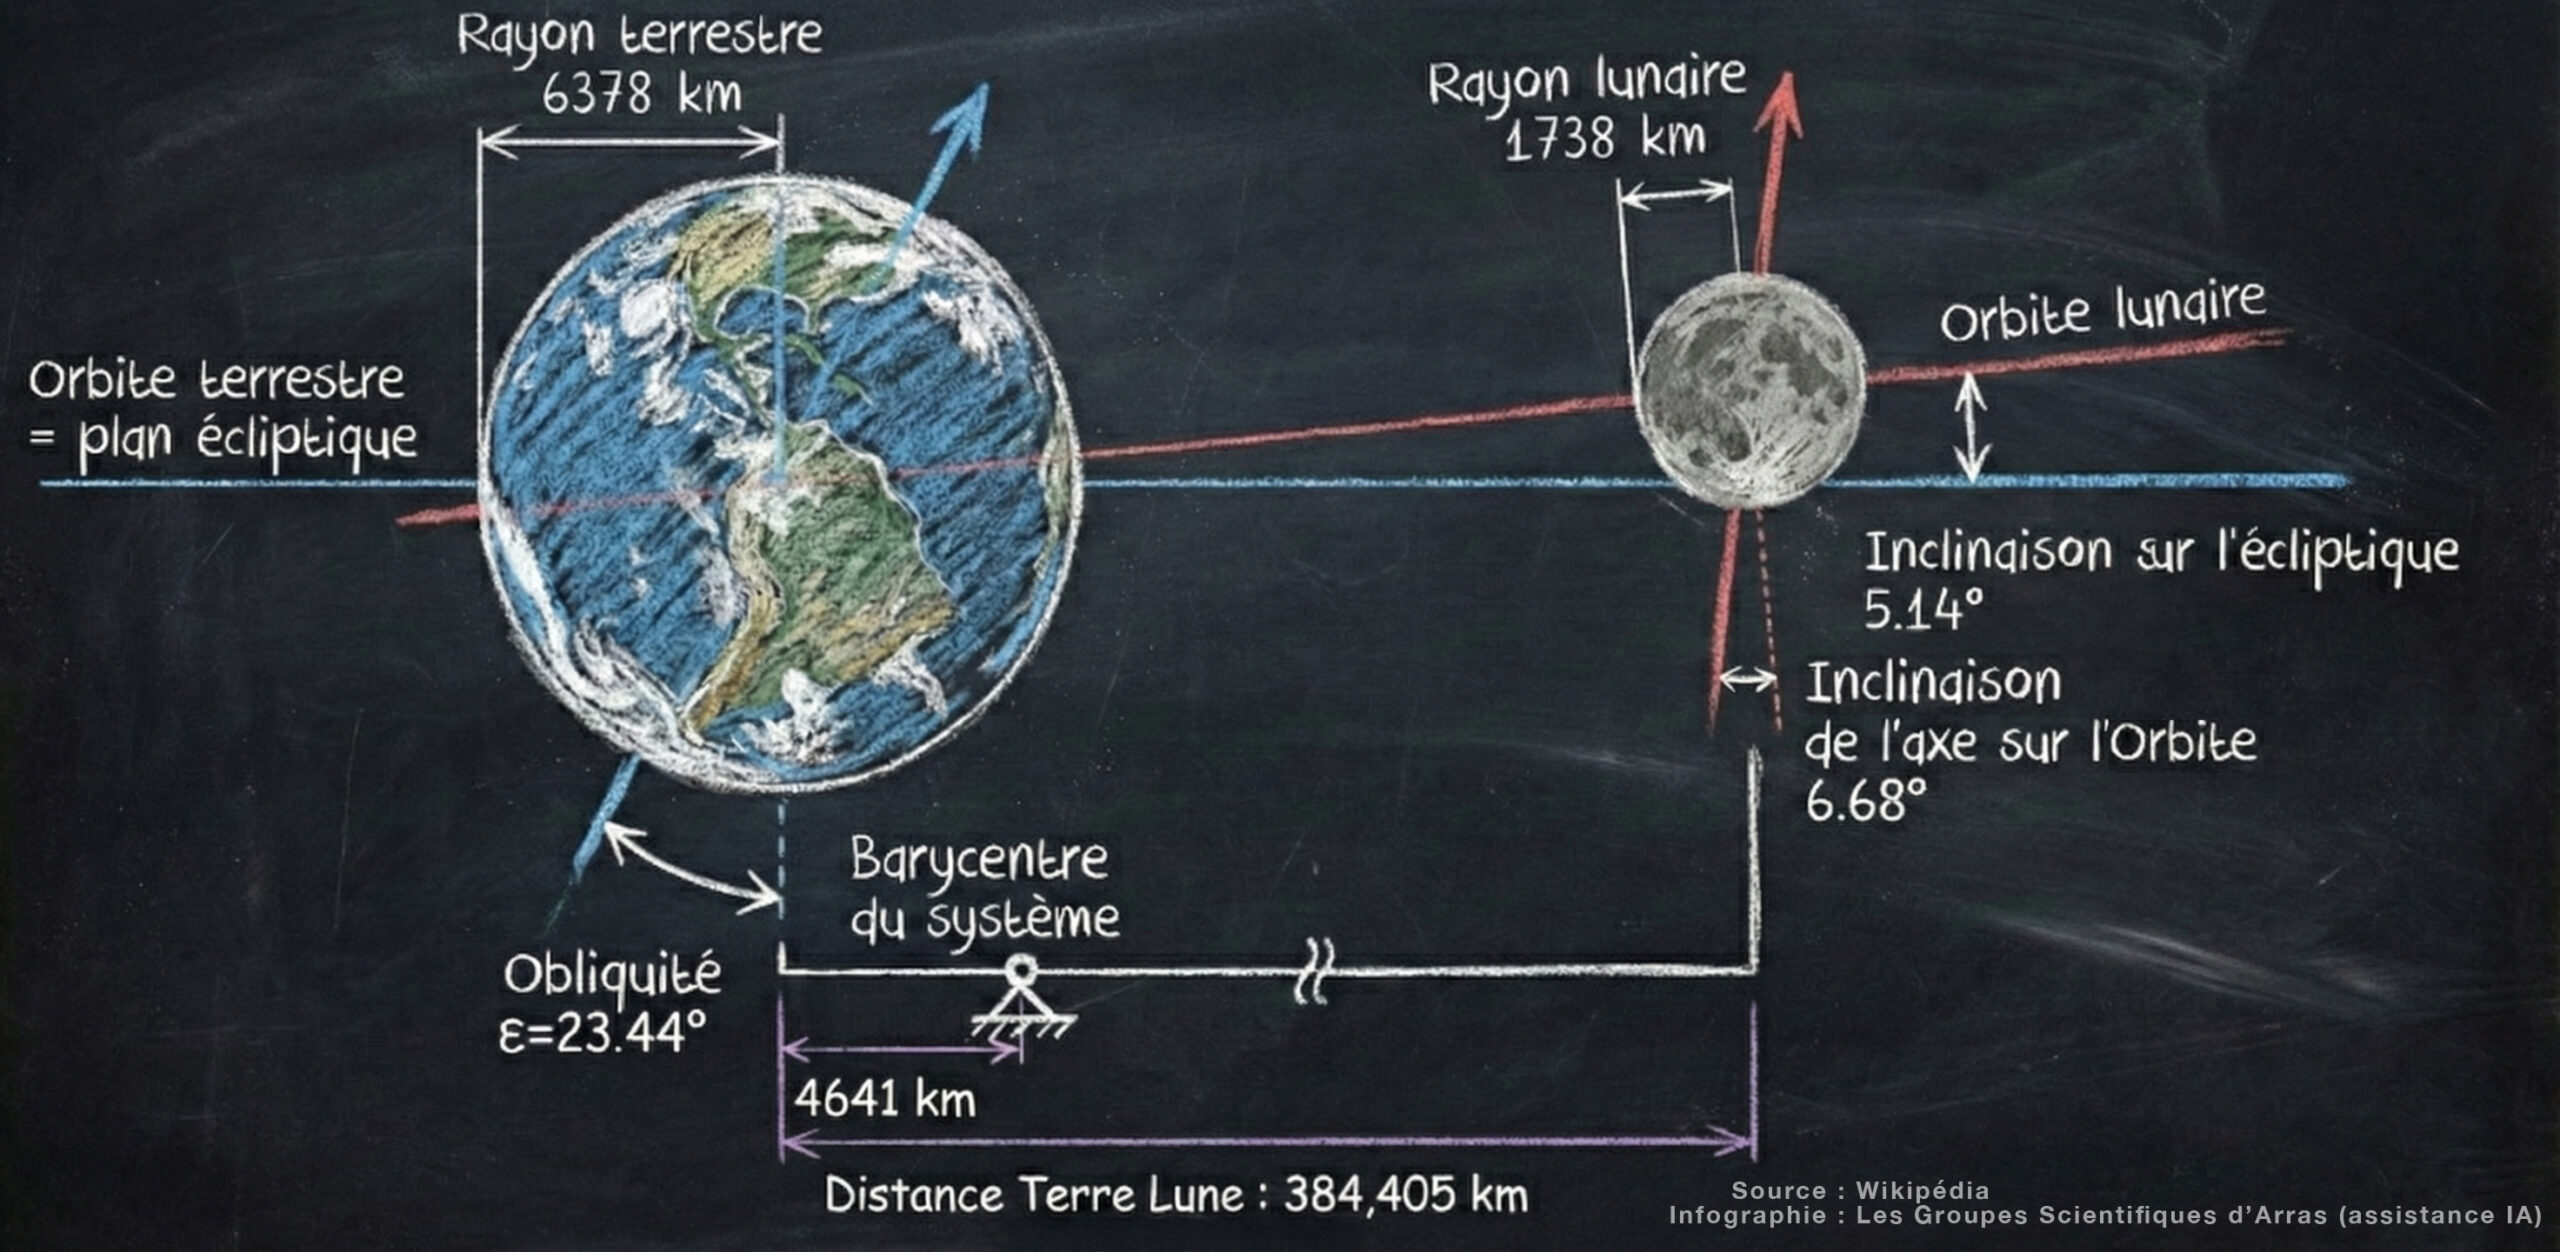 Rayon terrestre
6378 km
Rayon lunaire
1738 km
Orbite lunaire
Orbite terrestre
= plan écliptique
Inclinaison sur l'écliptique
5.14°
Inclinaison
de l'axe sur l'Orbite
6.68°
Barycentre
du système
Obliquité
ε=23.44°
4641 km
Distance Terre Lune : 384,405 km
Source : Wikipédia
Infographie : Les Groupes Scientifiques d’Arras (assistance IA)